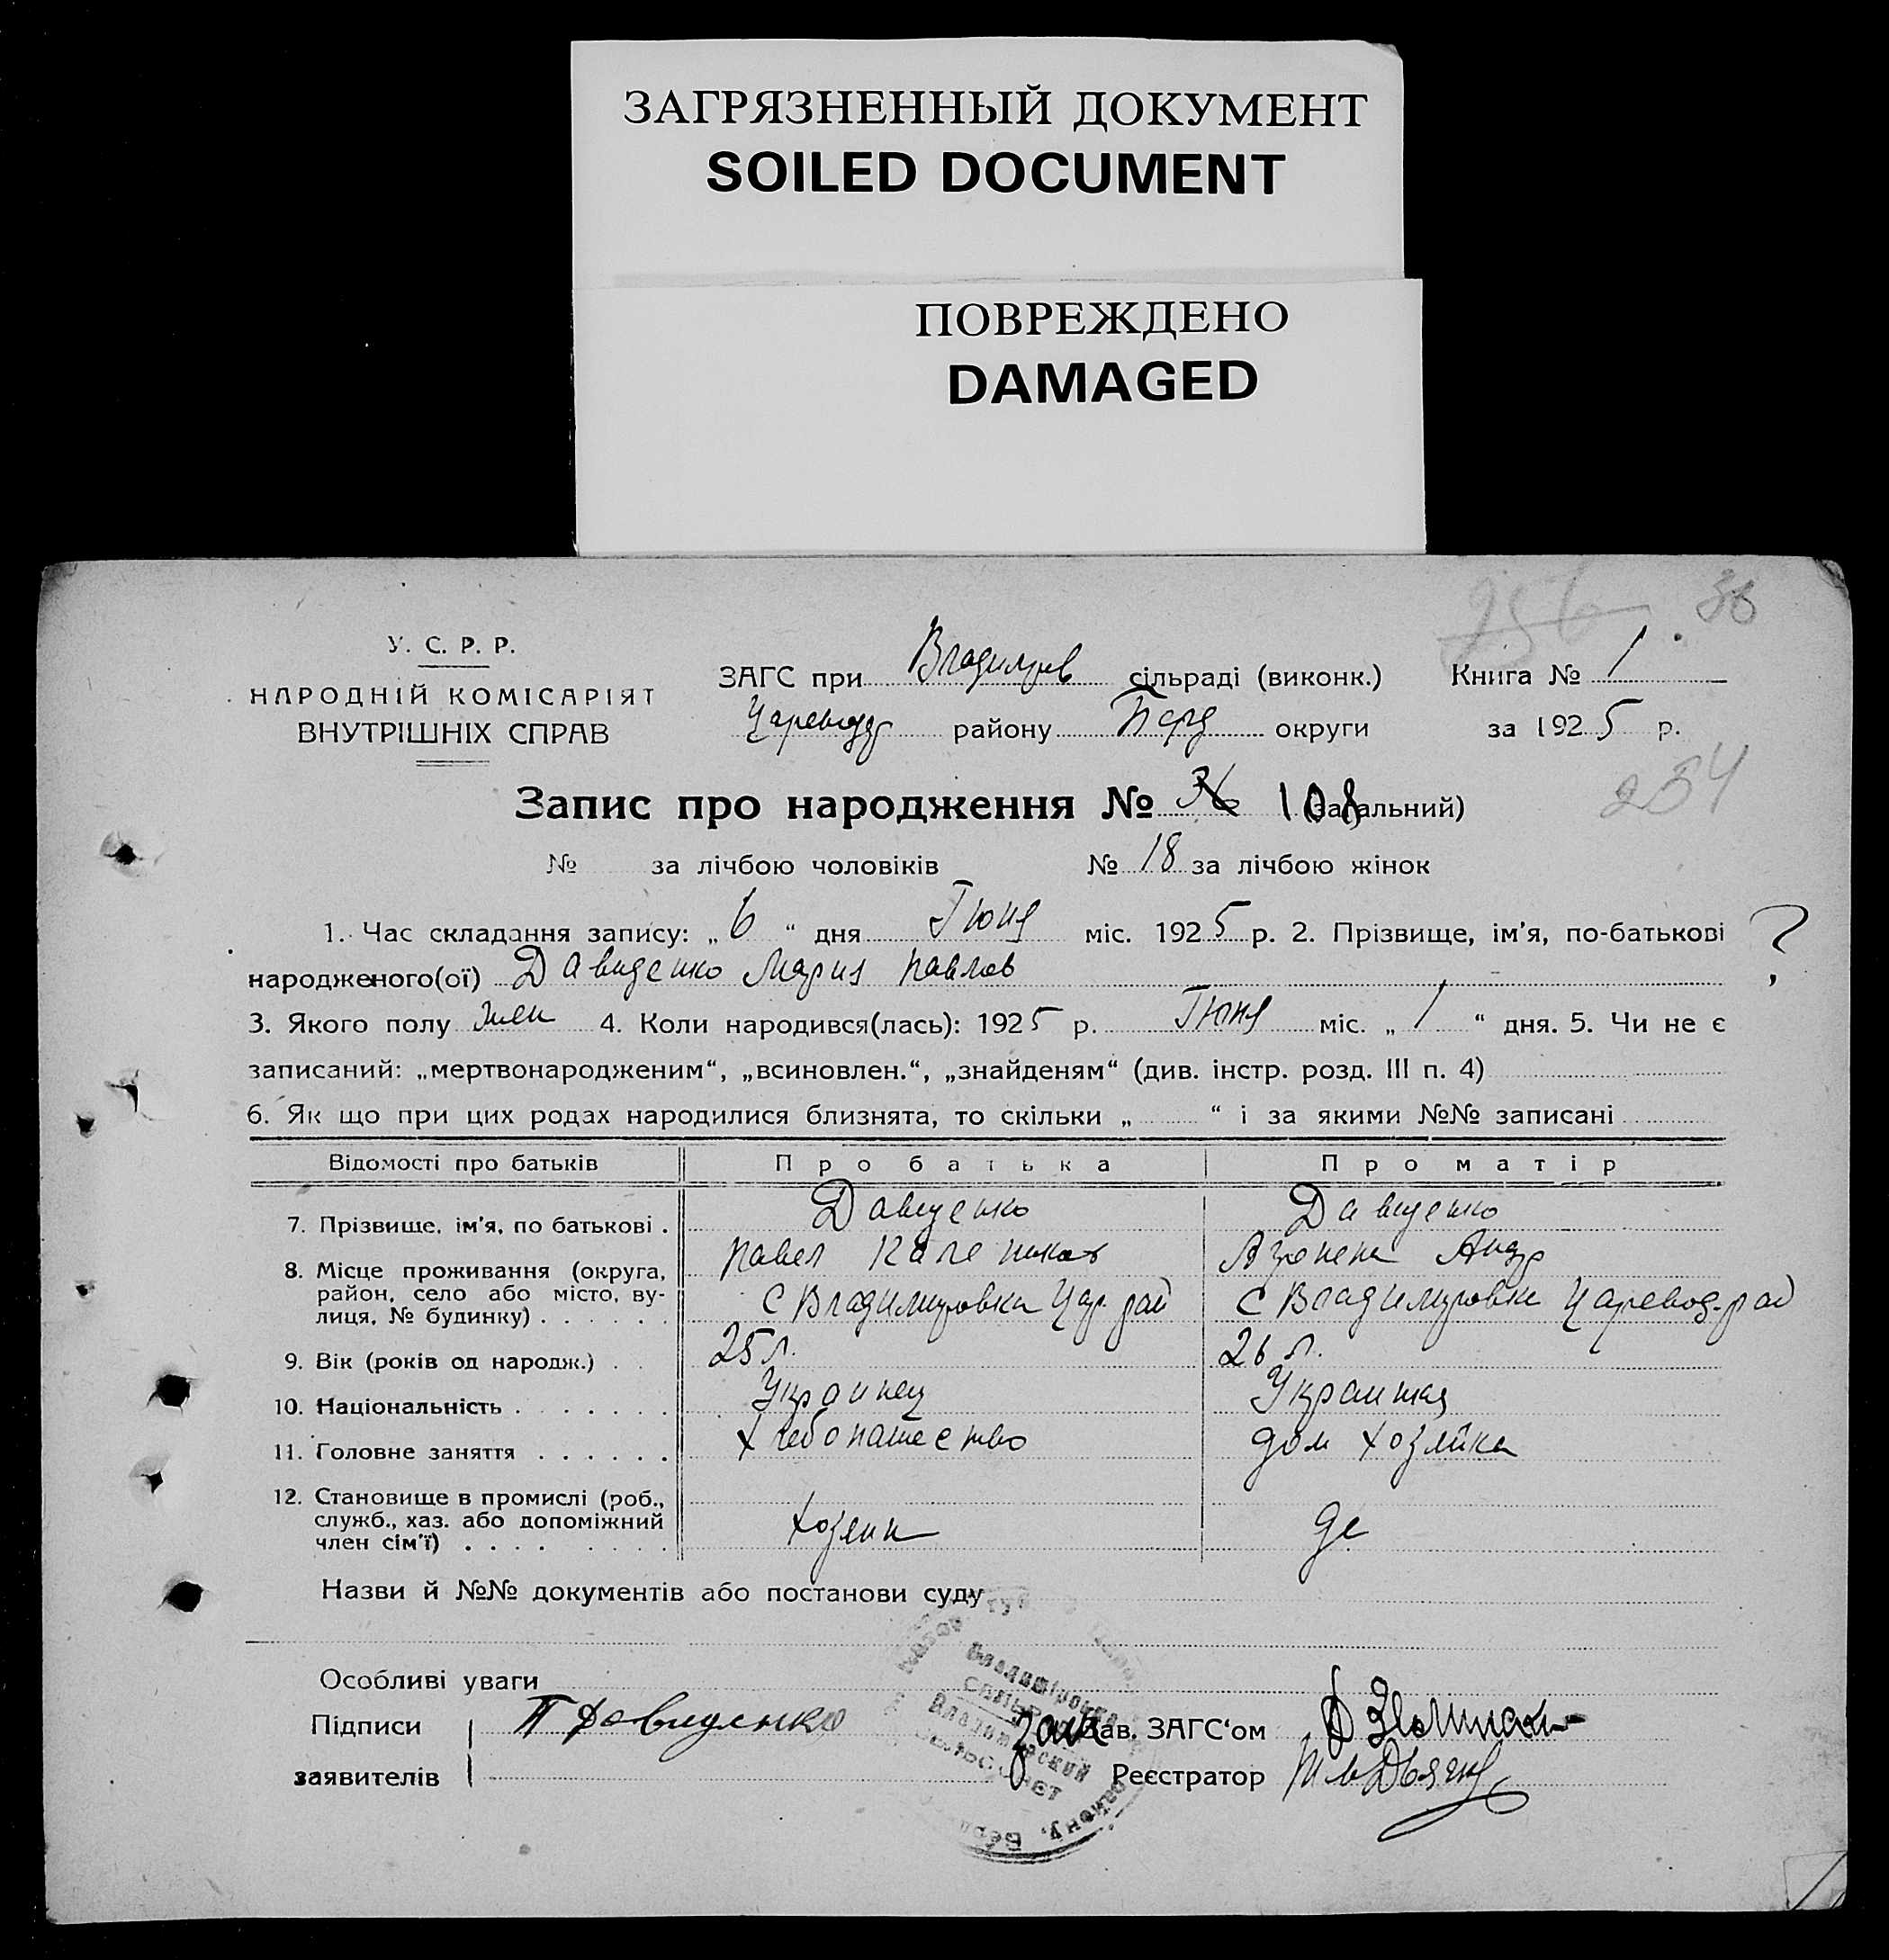 ЗАГРЯЗНЕННЫЙ ДОКУМЕНТ
SOILED DOCUMENT
ПОВРЕЖДЕНО
DAMAGED
256 36
У. С. Р. Р.
НАРОДНІЙ КОМІСАРІЯТ
ВНУТРІШНІХ СПРАВ
ЗАГС при Владимров сільраді (виконк.) Книга № 1
Царевод району Берд округи за 1925 р.
254
Запис про народження № 36 108 (загальний)
№ за лічбою чоловіків № 18 за лічбою жінок
1. Час складання запису: „6“ дня Июня міс. 1925 р. 2. Прізвище, ім'я, по-батькові ?
народженого(ої) Давиденко Мария Павлов
3. Якого полу жен 4. Коли народився(лась): 1925 р. Июня міс. „1“ дня. 5. Чи не є
записаний: „мертвонародженим“, „всиновлен.“, „знайденям“ (див. інстр. розд. III п. 4)
6. Як що при цих родах народилися близнята, то скільки „ “ і за якими №№ записані
Відомості про батьків Про батька Про матір
7. Прізвище, ім'я, по батькові . Давиденко Давиденко
Павел Андр
8. Місце проживання (округа, район, село або місто, вулиця, № будинку) . . . . . . С Владимировка Цар. рай С Владимировка Царевод. рай
9. Вік (років од народж.) . . 25 л. 26 л.
10. Національність . . . . . . . Украинец Украинка
11. Головне заняття . . . . . . Хлебопашество дом хозяйка
12. Становище в промислі (роб., служб., хаз. або допоміжний член сім'ї) . . . . . . . . Хозяин
Назви й №№ документів або постанови суду
Особливі уваги
Підписи П Давиденко Зав. ЗАГС'ом
заявителів Реєстратор